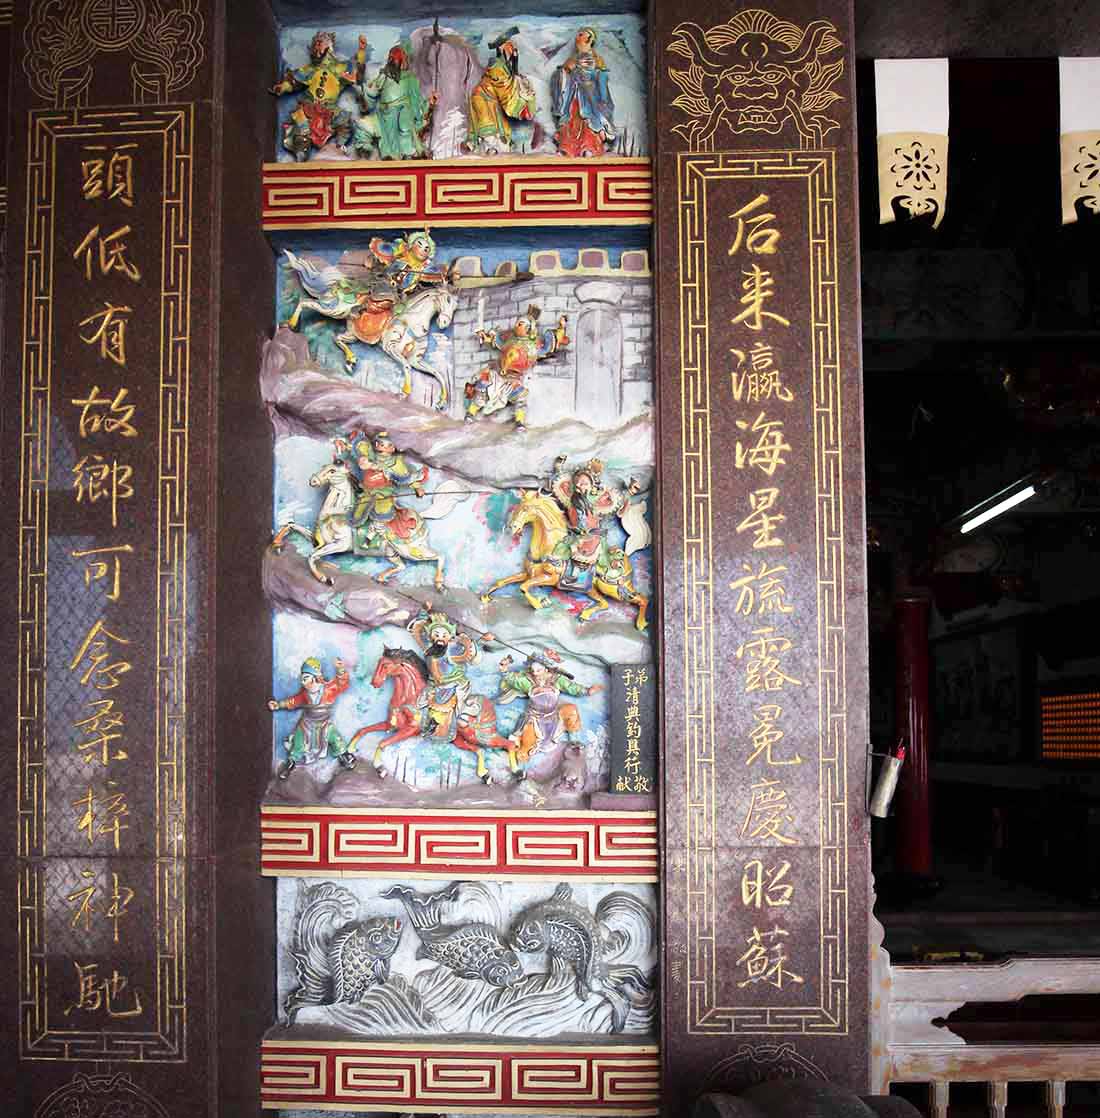 后来瀛海星旒露冕慶昭蘇
弟子清興釣具行敬献
頭低有故鄉可念桑梓神馳